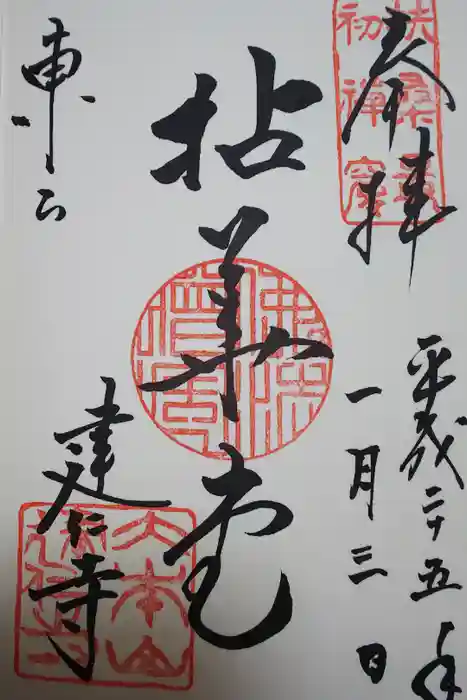 奉拝
平成二十五年
一月三日
扶桑最
初禅窟
拈華堂
東山
建仁寺